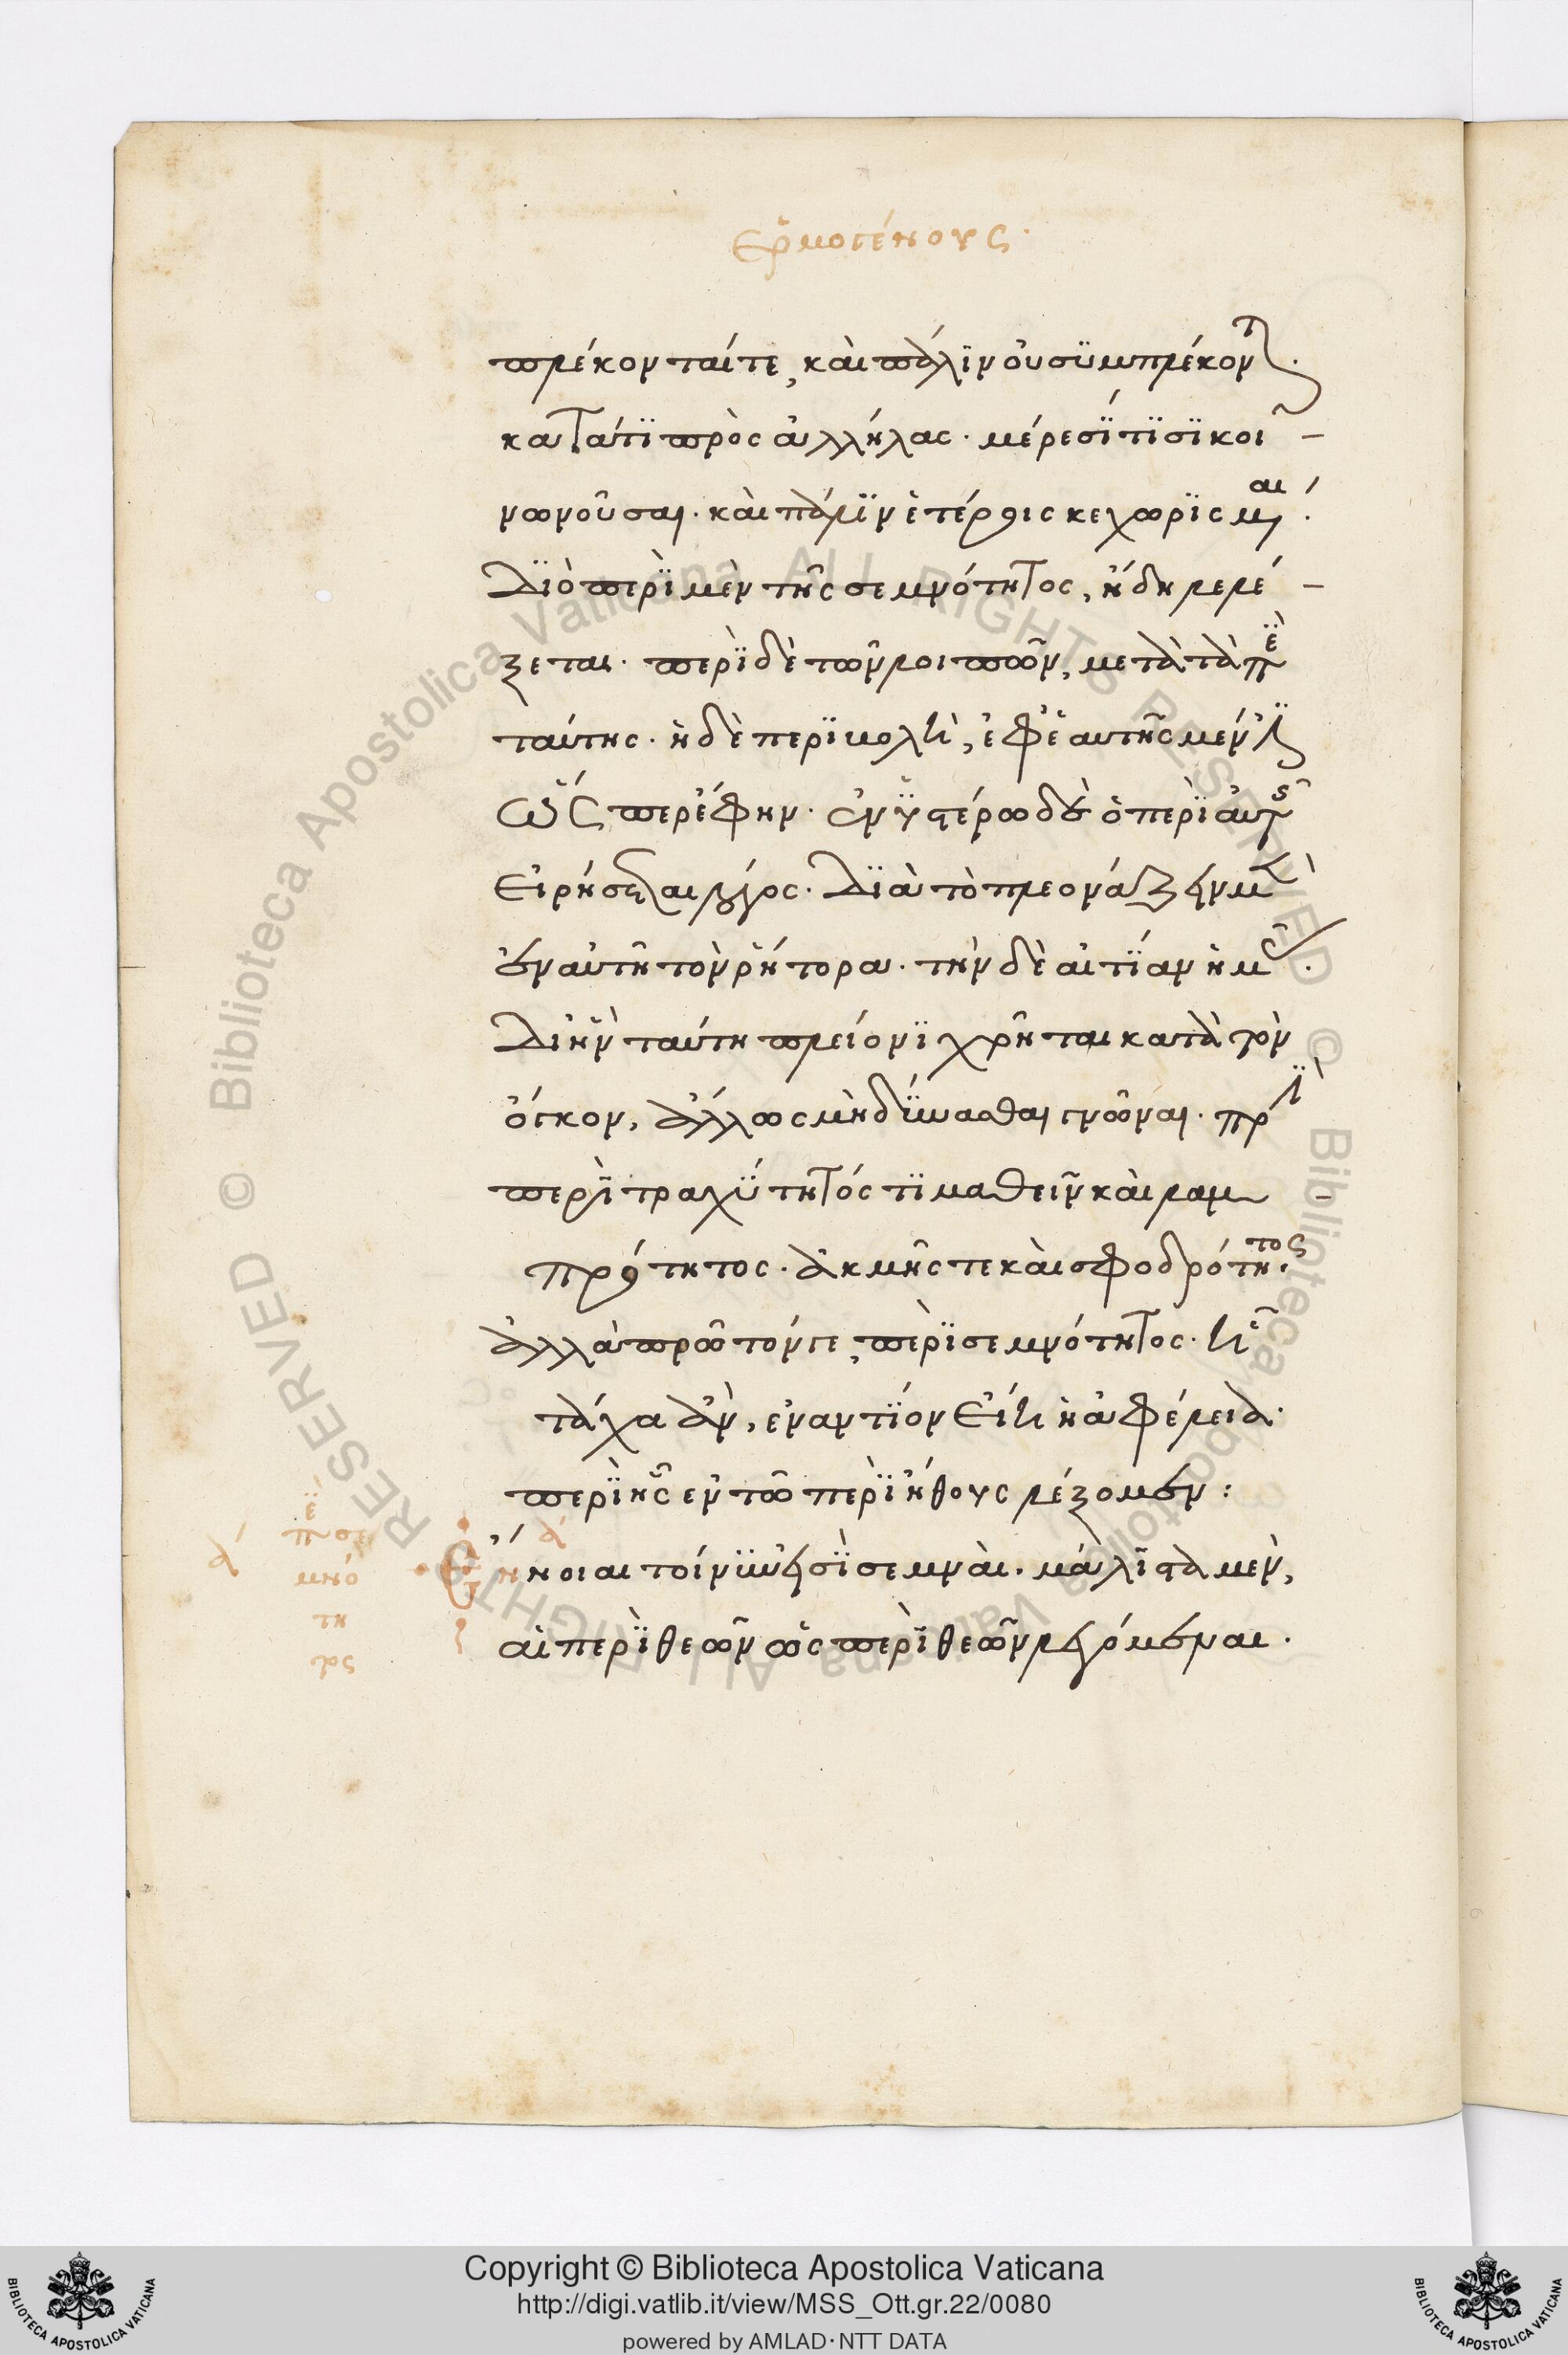 Ερμογένους.
πλέκονταί τε, καὶ πάλιν οὐ συμπλέκονται.
κατά τι πρὸς ἀλλήλας. μέρεσί τισι κοι-
νωνοῦσαι. καὶ πάλιν ἑτέροις κεχωρισμέναι.
Διὸ περὶ μὲν τῆς σεμνότητος, ἤδη λελέ-
ξεται. περὶ δὲ τῶν λοιπῶν, μετὰ τὰ περὶ
ταύτης. ἡ δὲ περιβολὴ, ἐφ' ἑαυτῆς μέν ἐστιν
ὥσπερ ἔφην. ἐν ὑστέρω δὲ ὁ περὶ αὐτῆς
εἰρήσεται λόγος. Διὰ τὸ πλεονάζειν μὲν
ἐν αὐτῆ τὸν ῥήτορα. τὴν δὲ αἰτίαν ἡμᾶς.
Δι' ἣν ταύτη πλείονι χρῆται κατὰ τὸν
ὄγκον, ἄλλως μὴ δύνασθαι γνῶναι. πρὶν
περὶ τραχύτητός τι μαθεῖν καὶ λαμ-
πρότητος. ἀκμῆς τε καὶ σφοδρότητος.
Ἀλλὰ πρῶτόν γε, περὶ σεμνότητος. ἧς
τάχα ἂν, ἐναντίον εἴη ἡ ἀφέλεια.
περὶ ἧς ἐν τῶ περὶ ἤθους λέξομεν:
περὶ
σε
μνό
τη
τος
α
Ἔννοιαι τοίνυν εἰσὶ σεμναὶ. μάλιστα μὲν,
αἱ περὶ θεῶν ὡς περὶ θεῶν λεγόμεναι.
Copyright © Biblioteca Apostolica Vaticana
http://digi.vatlib.it/view/MSS_Ott.gr.22/0080
powered by AMLAD·NTT DATA
BIBLIOTECA APOSTOLICA VATICANA
BIBLIOTECA APOSTOLICA VATICANA